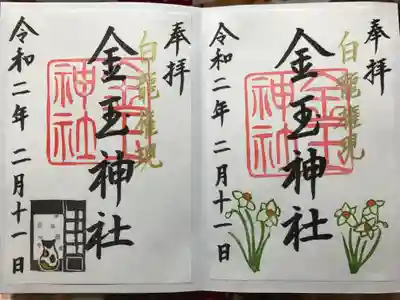 奉拝
白龍權現
金玉神社
金玉神社
令和二年 二月十一日
奉拝
白龍權現
金玉神社
金玉神社
令和二年 二月十一日